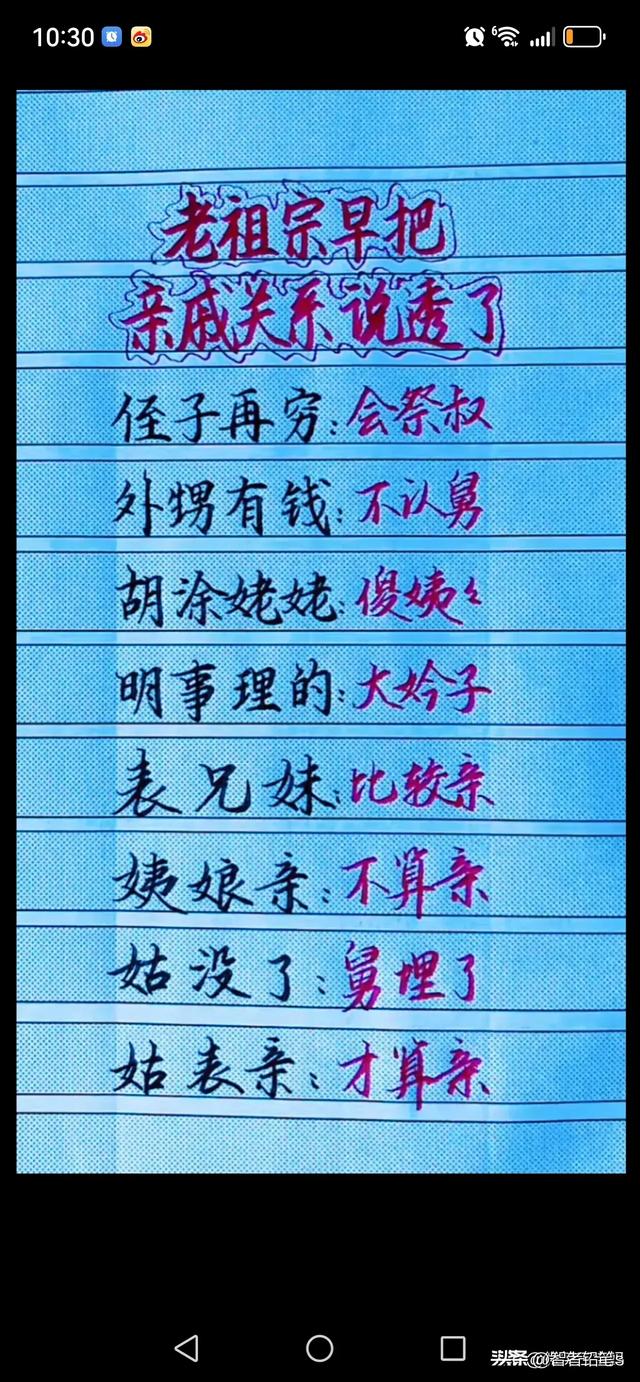 10:30
6
老祖宗早把
亲戚关系说透了
侄子再穷:会祭叔
外甥有钱:不认舅
胡涂姥姥:傻姨々
明事理的:大妗子
表兄妹:比较亲
姨娘亲:不算亲
姑没了:舅埋了
姑表亲:才算亲
头条@智者铅笔5